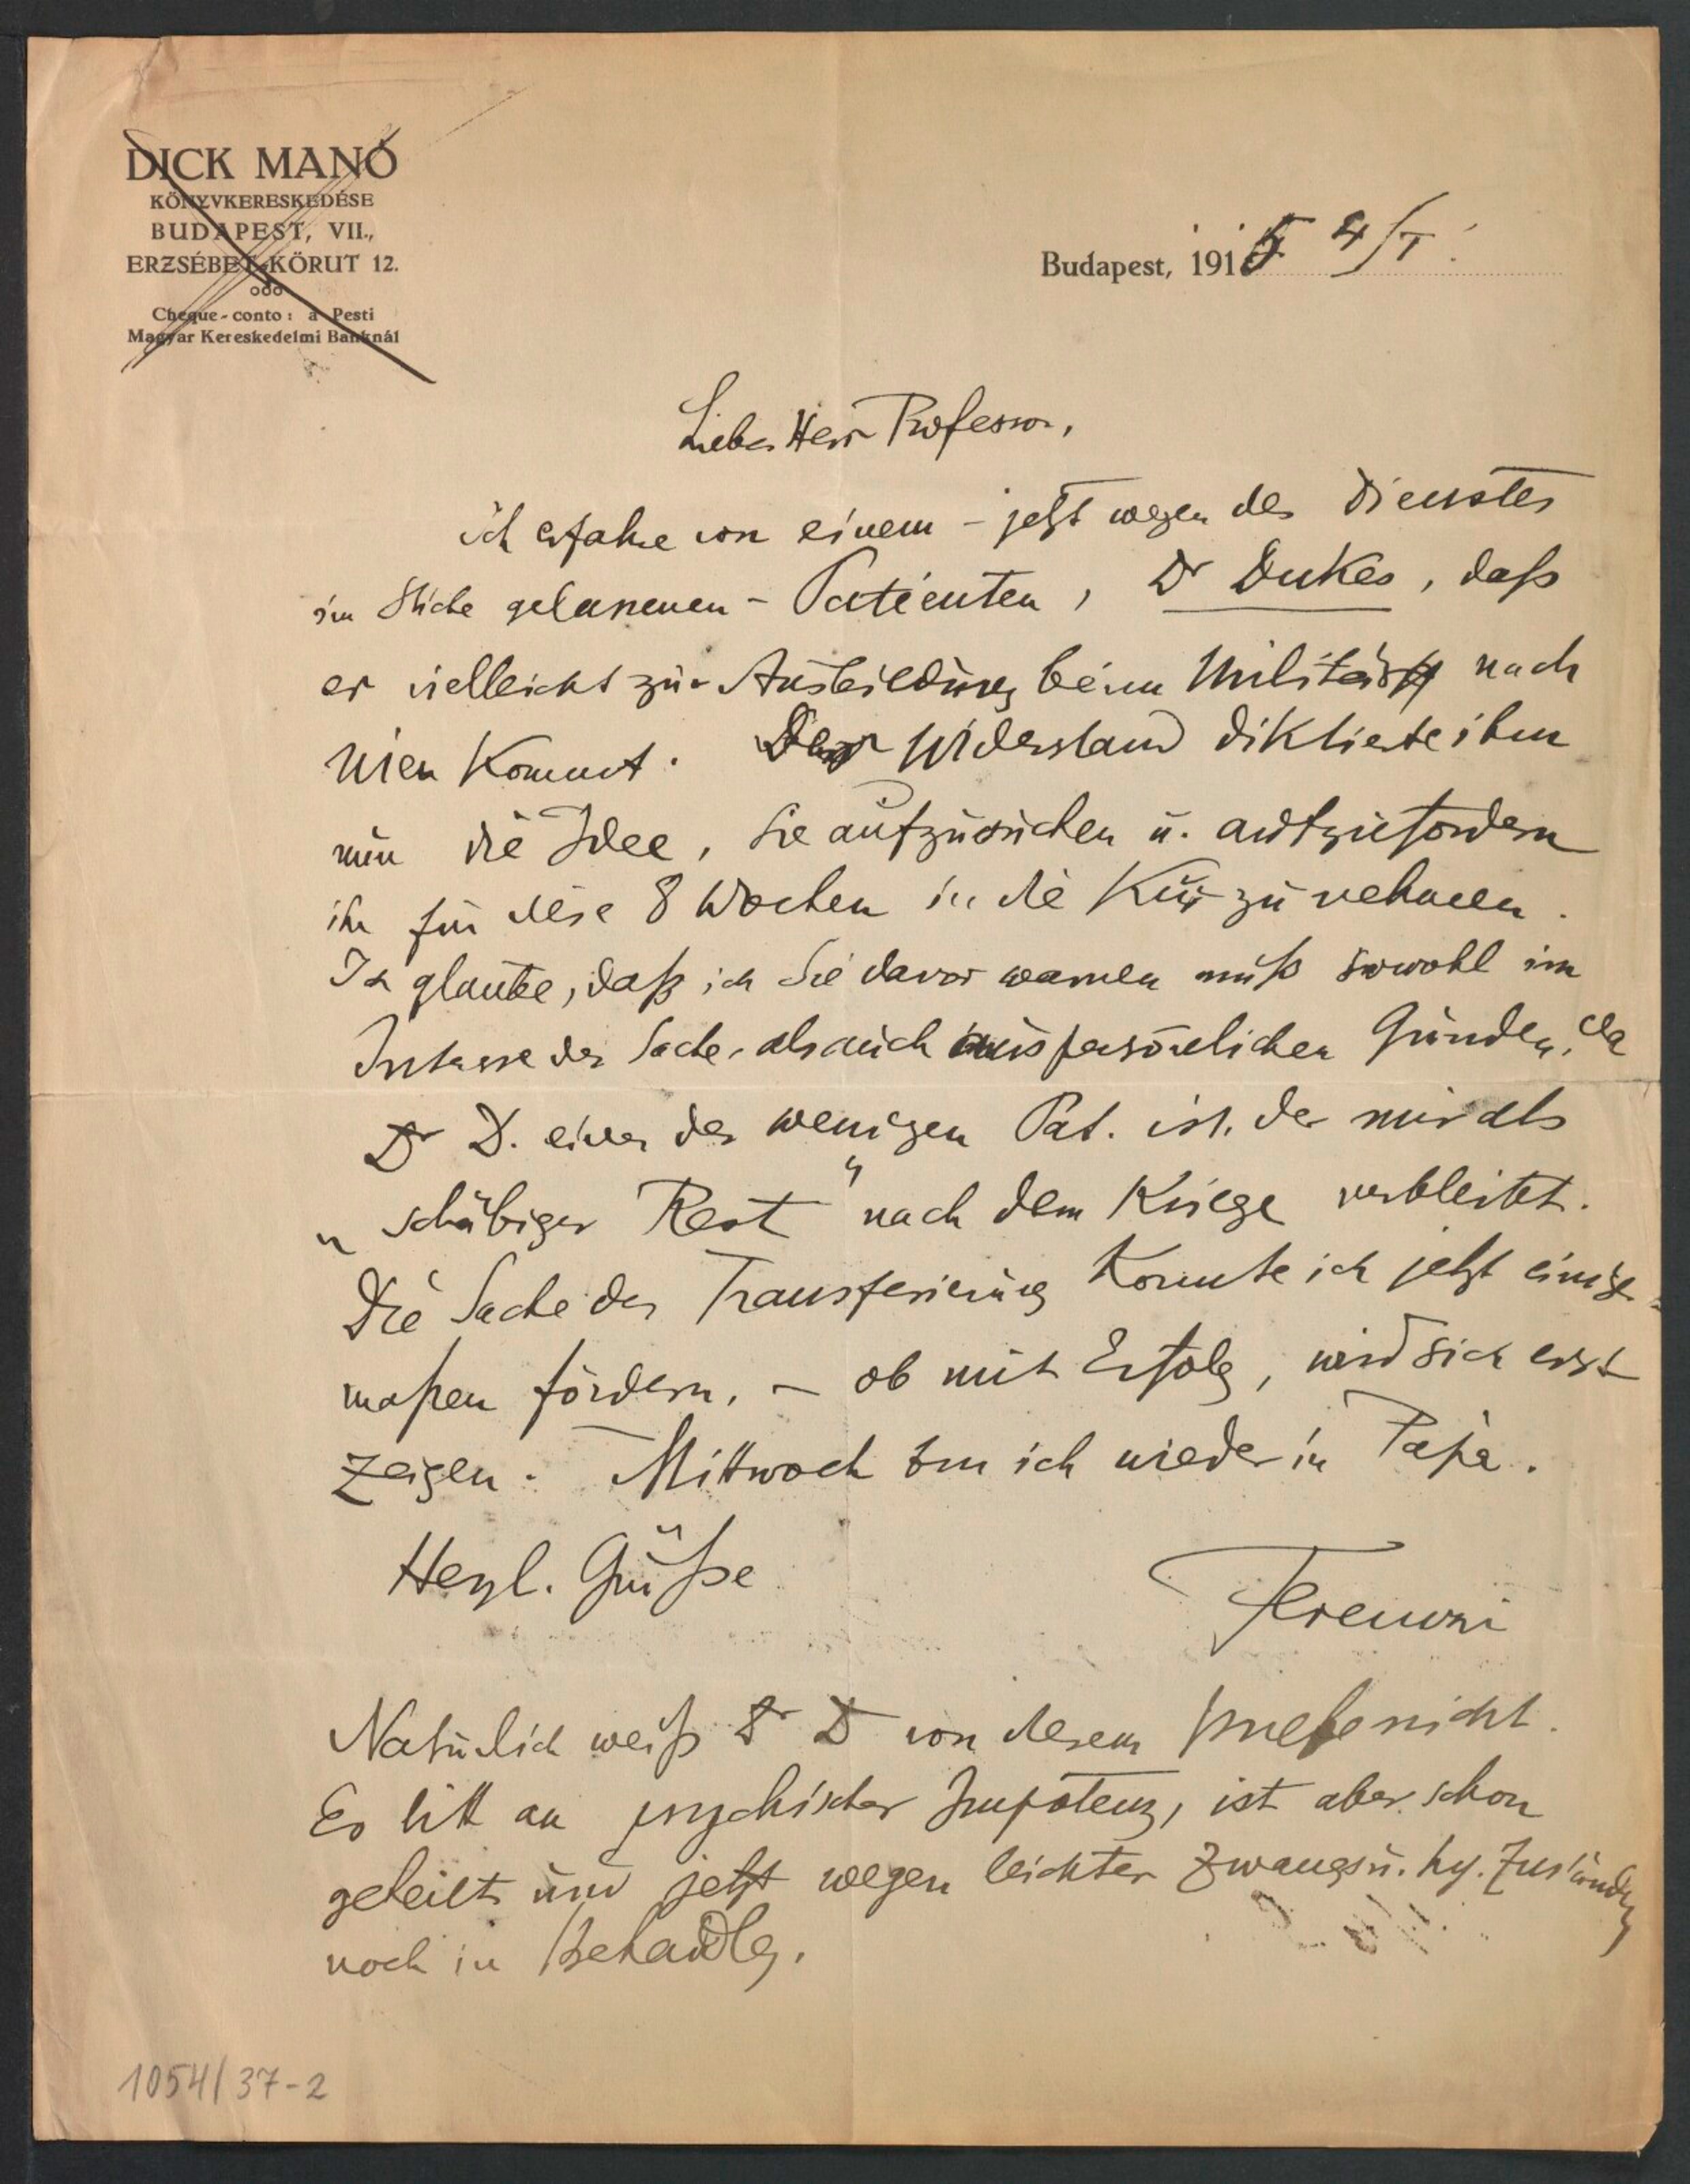 DICK MANÓ
KÖNYVKERESKEDÉSE
BUDAPEST, VII.,
ERZSÉBET-KÖRUT 12.
Cheque-conto: a Pesti
Magyar Kereskedelmi Banknál
Budapest, 1915 4/I.
Lieber Herr Professor,
ich erfahre von einem – jetzt wegen des Dienstes
im Stiche gelassenen – Patienten, Dr Dukes, daß
er vielleicht zur Ausbildung beim Militär nach
Wien kommt. Der Widerstand diktierte ihm
nun die Idee, Sie aufzusuchen u. aufzufordern
ihn für diese 8 Wochen in die Kur zu nehmen.
Ich glaube, daß ich Sie davor warnen muß sowohl im
Interesse der Sache, als auch aus persönlichen Gründen, da
Dr D. einer der wenigen Pat. ist, der mir als
„schäbiger Rest“ nach dem Kriege verbleibt.
Die Sache der Transferierung konnte ich jetzt einiger-
maßen fördern, – ob mit Erfolg, wird sich erst
zeigen. – Mittwoch bin ich wieder in Pápa.
Herzl. Grüße
Ferenczi
Natürlich weiß Dr D von diesem Briefe nicht.
Er litt an psychischer Impotenz, ist aber schon
geheilt und jetzt wegen leichter Zwangs u. hy. Zustände
noch in Behandlg.
1054/37-2